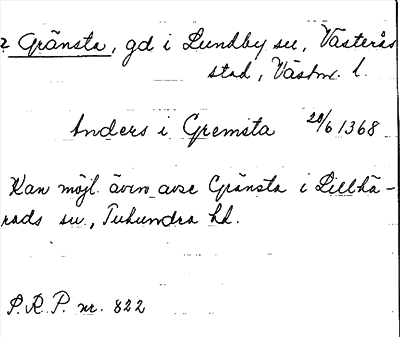 ? Gränsta, gd i Lundby sn, Västerås
stad, Västm. l.
Anders i Gremsta 28/6 1368
Kan möjl. även avse Gränsta i Lillhä-
rads sn., Tuhundra hd.
S.R.P. nr. 822